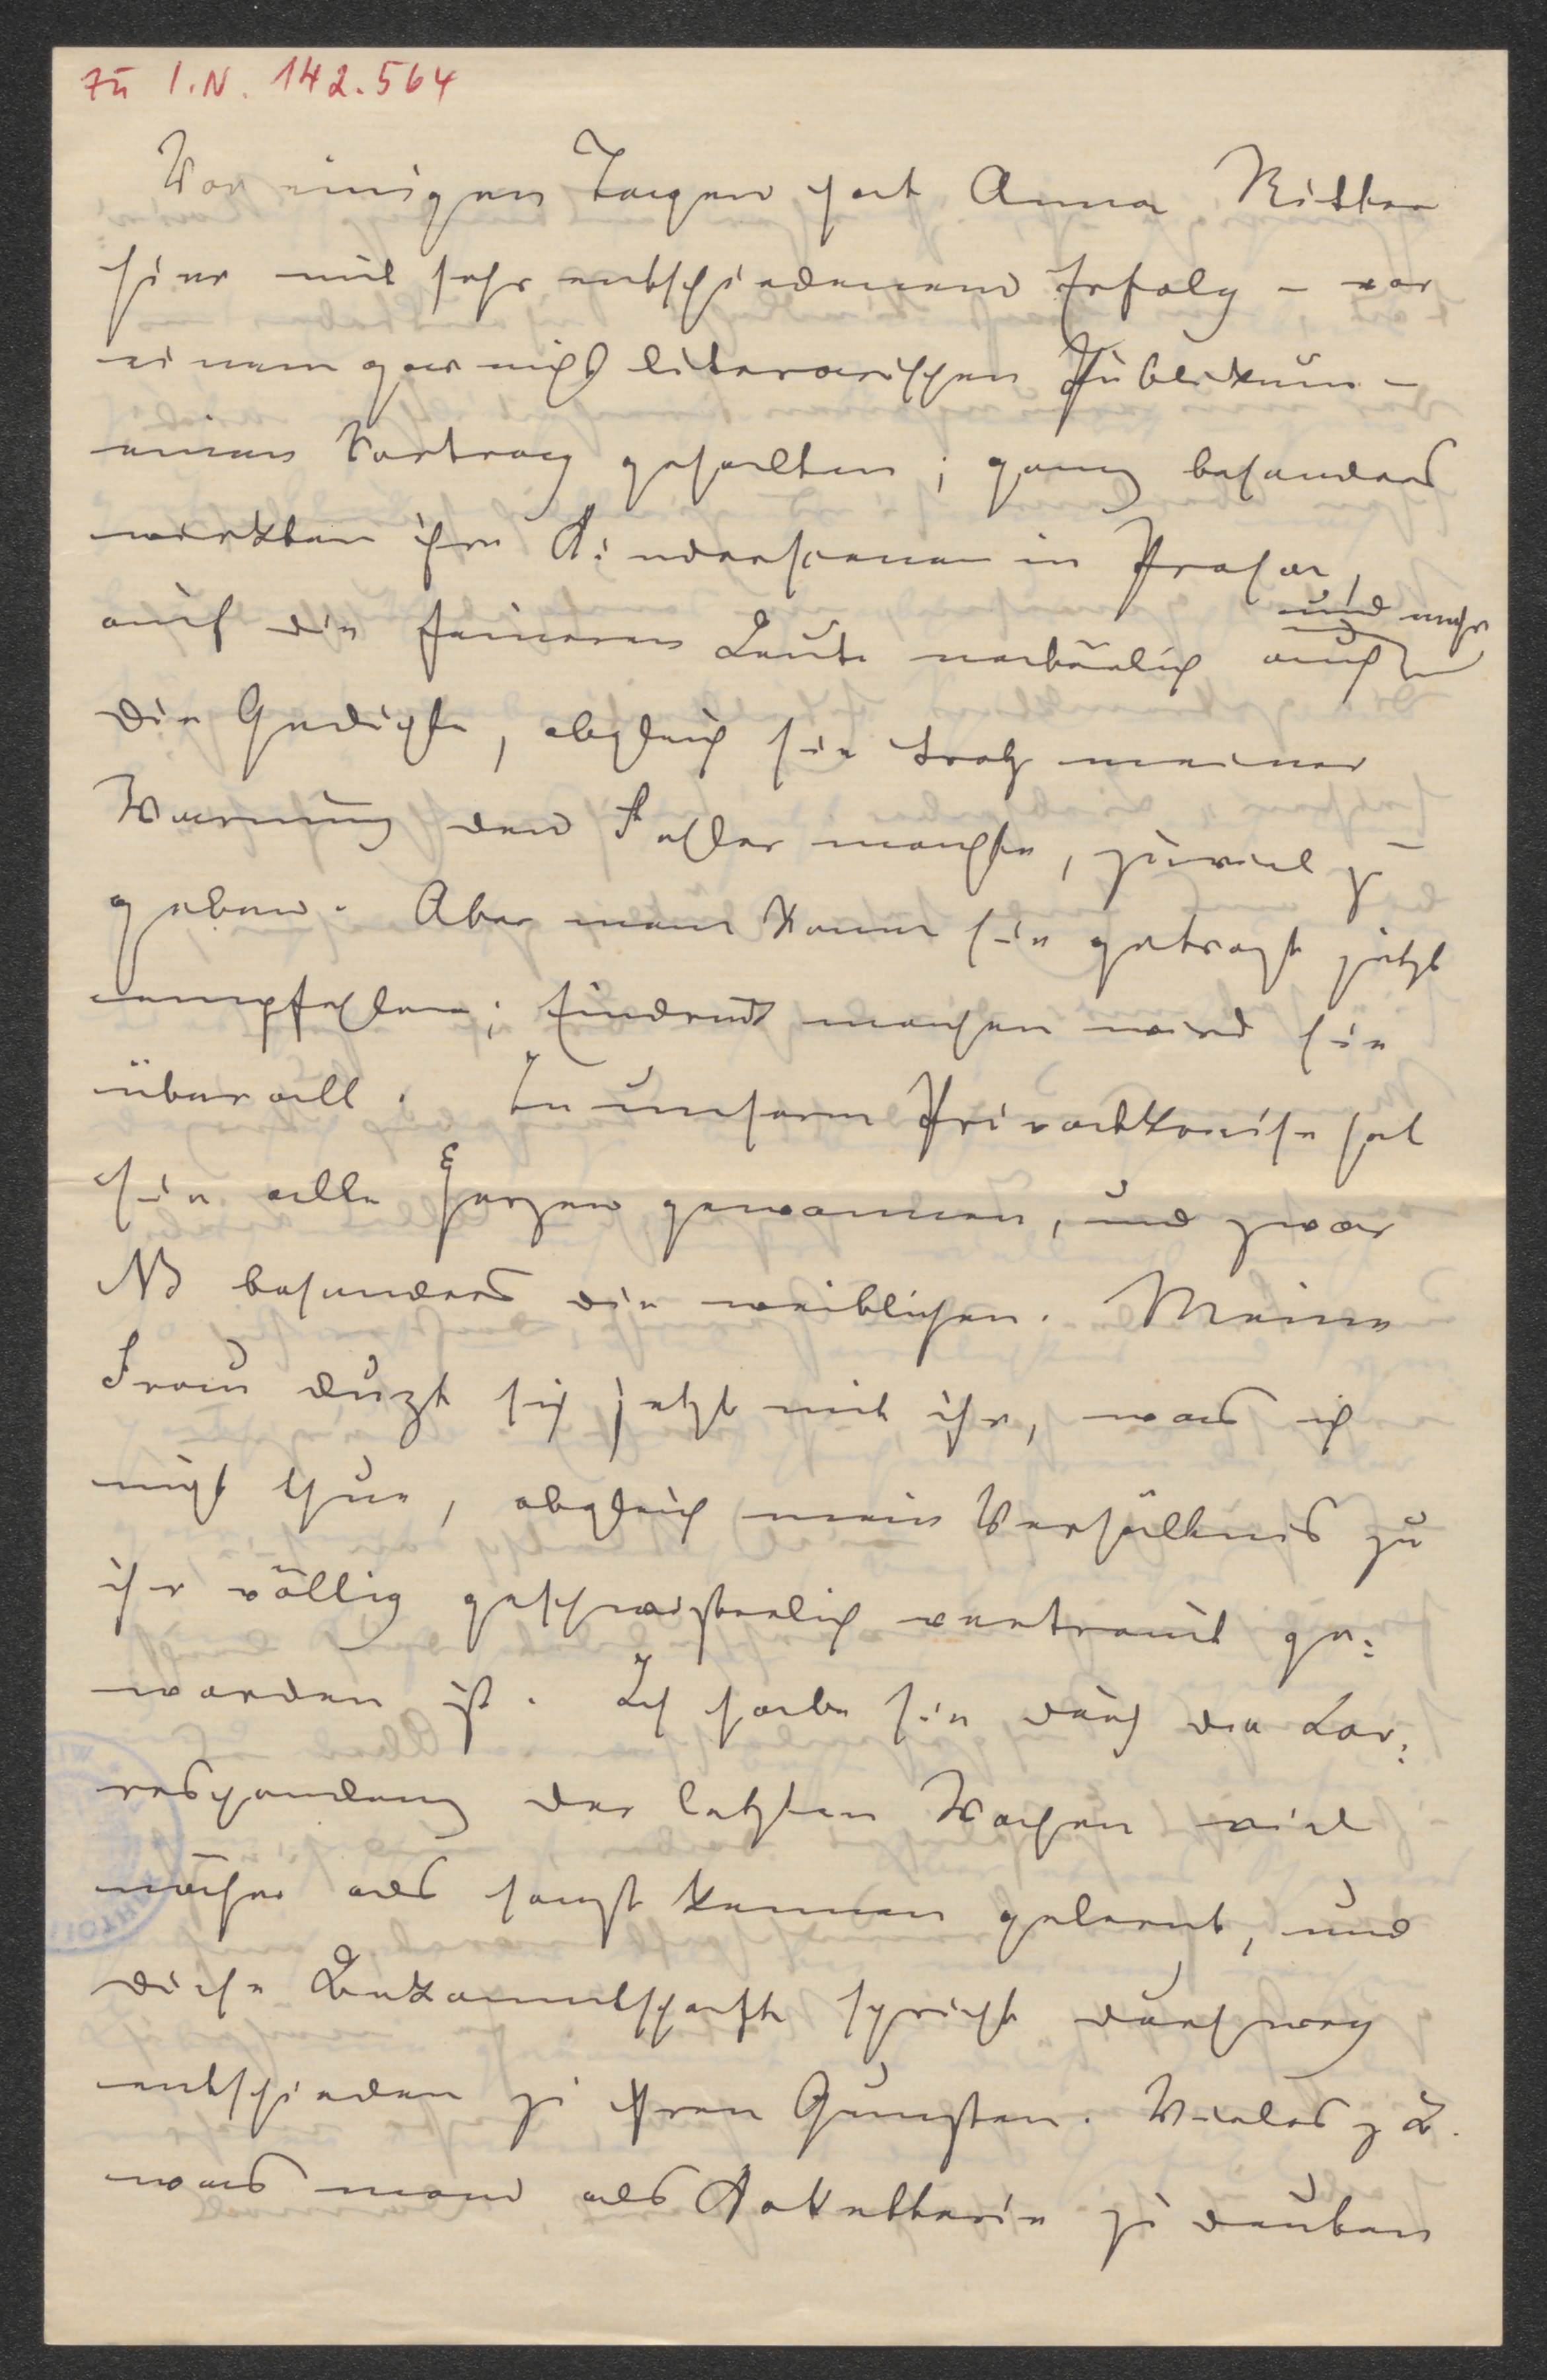 zu I.N. 142.564
Vor einigen Tagen hat Anna Ritter
hier mit sehr entschiedenem Erfolg – vor
einem gar nicht literarischen Publikum –
einen Vortrag gehalten; ganz besonders
wirkten ihre Kinderscenen in Prosa,
und mehr
auf die feineren Leute natürlich auch
die Gedichte, obgleich sie trotz meiner
Warnung den Fehler machte, zuviel zu
geben. Aber man kann sie getrost jetzt
empfehlen; Eindruck machen wird sie
überall. In unserm Privatkreise hat
sie alle Herzen gewonnen, und zwar
NB besonders die weiblichen. Meine
Frau duzt sich jetzt mit ihr, was ich
nicht thue, obgleich mein Verhältnis zu
ihr völlig geschwisterlich vertraut ge:
worden ist. Ich habe sie durch die Cor:
respondenz der letzten Wochen viel
näher als sonst kennen gelernt, und
diese Bekanntschaft spricht durchweg
entschieden zu ihren Gunsten. Vieles z B.
was man als Koketterie zu deuten